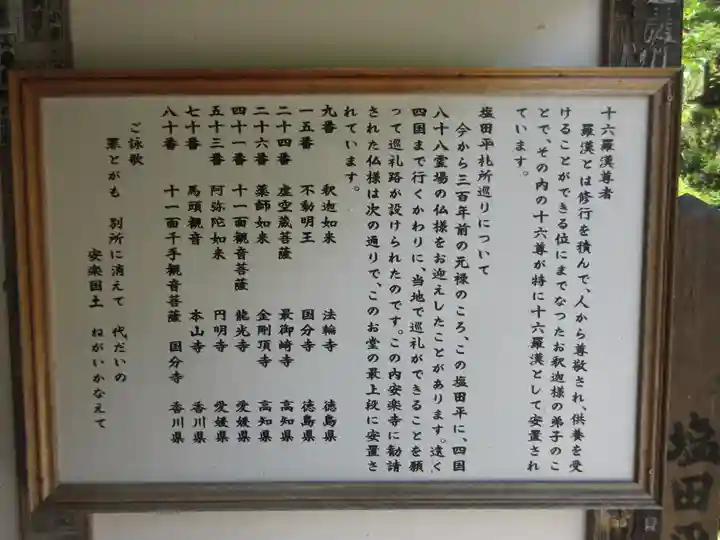 十六羅漢尊者
羅漢とは修行を積んで、人から尊敬され、供養を受
けることができる位にまでなったお釈迦様の弟子のこ
とで、その内の十六尊が特に十六羅漢として安置され
ています。
塩田平札所巡りについて
今から三百年前の元禄のころ、この塩田平に、四国
八十八霊場の仏様をお迎えしたことがあります。遠く
四国まで行くかわりに、当地で巡礼ができることを願
って巡礼路が設けられたのです。この内安楽寺に勧請
された仏様は次の通りで、このお堂の最上段に安置さ
れています。
九番 釈迦如来 法輪寺 徳島県
一五番 不動明王 国分寺 徳島県
二十四番 虚空蔵菩薩 最御崎寺 高知県
二十六番 薬師如来 金剛頂寺 高知県
四十一番 十一面観音菩薩 龍光寺 愛媛県
五十三番 阿弥陀如来 円明寺 愛媛県
七十番 馬頭観音 本山寺 香川県
八十番 十一面千手観音菩薩 国分寺 香川県
ご詠歌
罪とがも 別所に消えて 代だいの
安楽国土 ねがいかなえて
塩田平